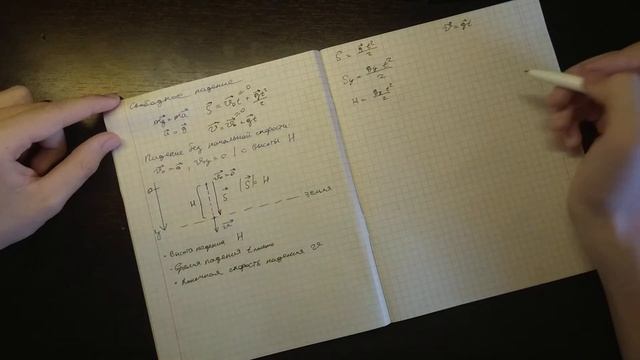 Свободное падение
m g⃗ = m a⃗
a⃗ = g⃗
S⃗ = v⃗₀t + g⃗t²/2
=0
v⃗ = v⃗₀ + g⃗t
=0
Падение без начальной скорости:
v⃗₀ = 0⃗, v₀y = 0 | с высоты H
0
v⃗₀ = 0⃗
H
S⃗
|S⃗| = H
y
v⃗
земля
• Высота падения H
• Время падения t
• Конечная скорость падения v
S⃗ = g⃗t²/2
Sy = gy t²/2
H = gy t²/2
v⃗ = g⃗t